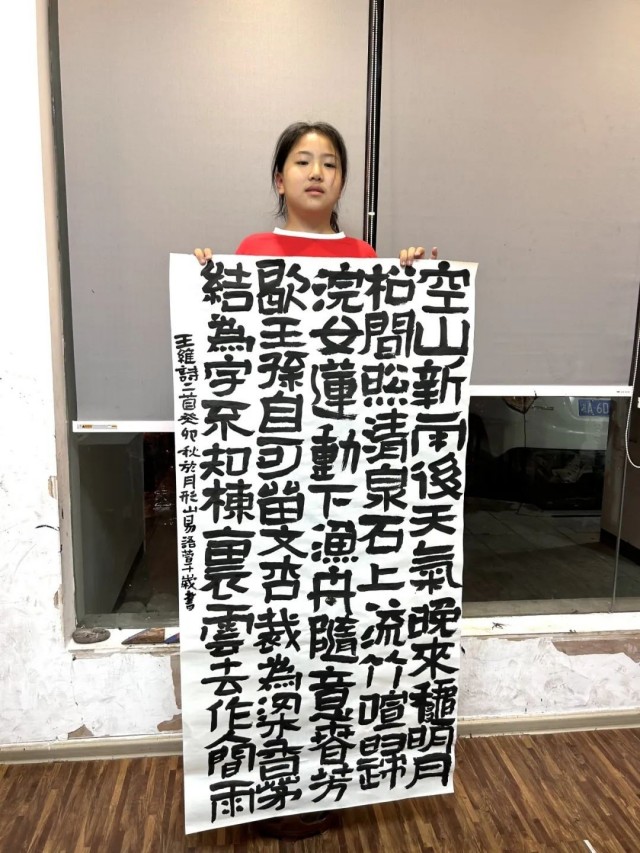 空山新雨後天氣晚來穐明月
松間照清泉石上流竹喧歸
浣女蓮動下漁舟隨意春芳
歇王孫自可留文杏裁為梁香茅
結為宇不知棟裏雲去作人間雨
王維詩二首癸卯秋於月形山易萱十歲書
A 6D